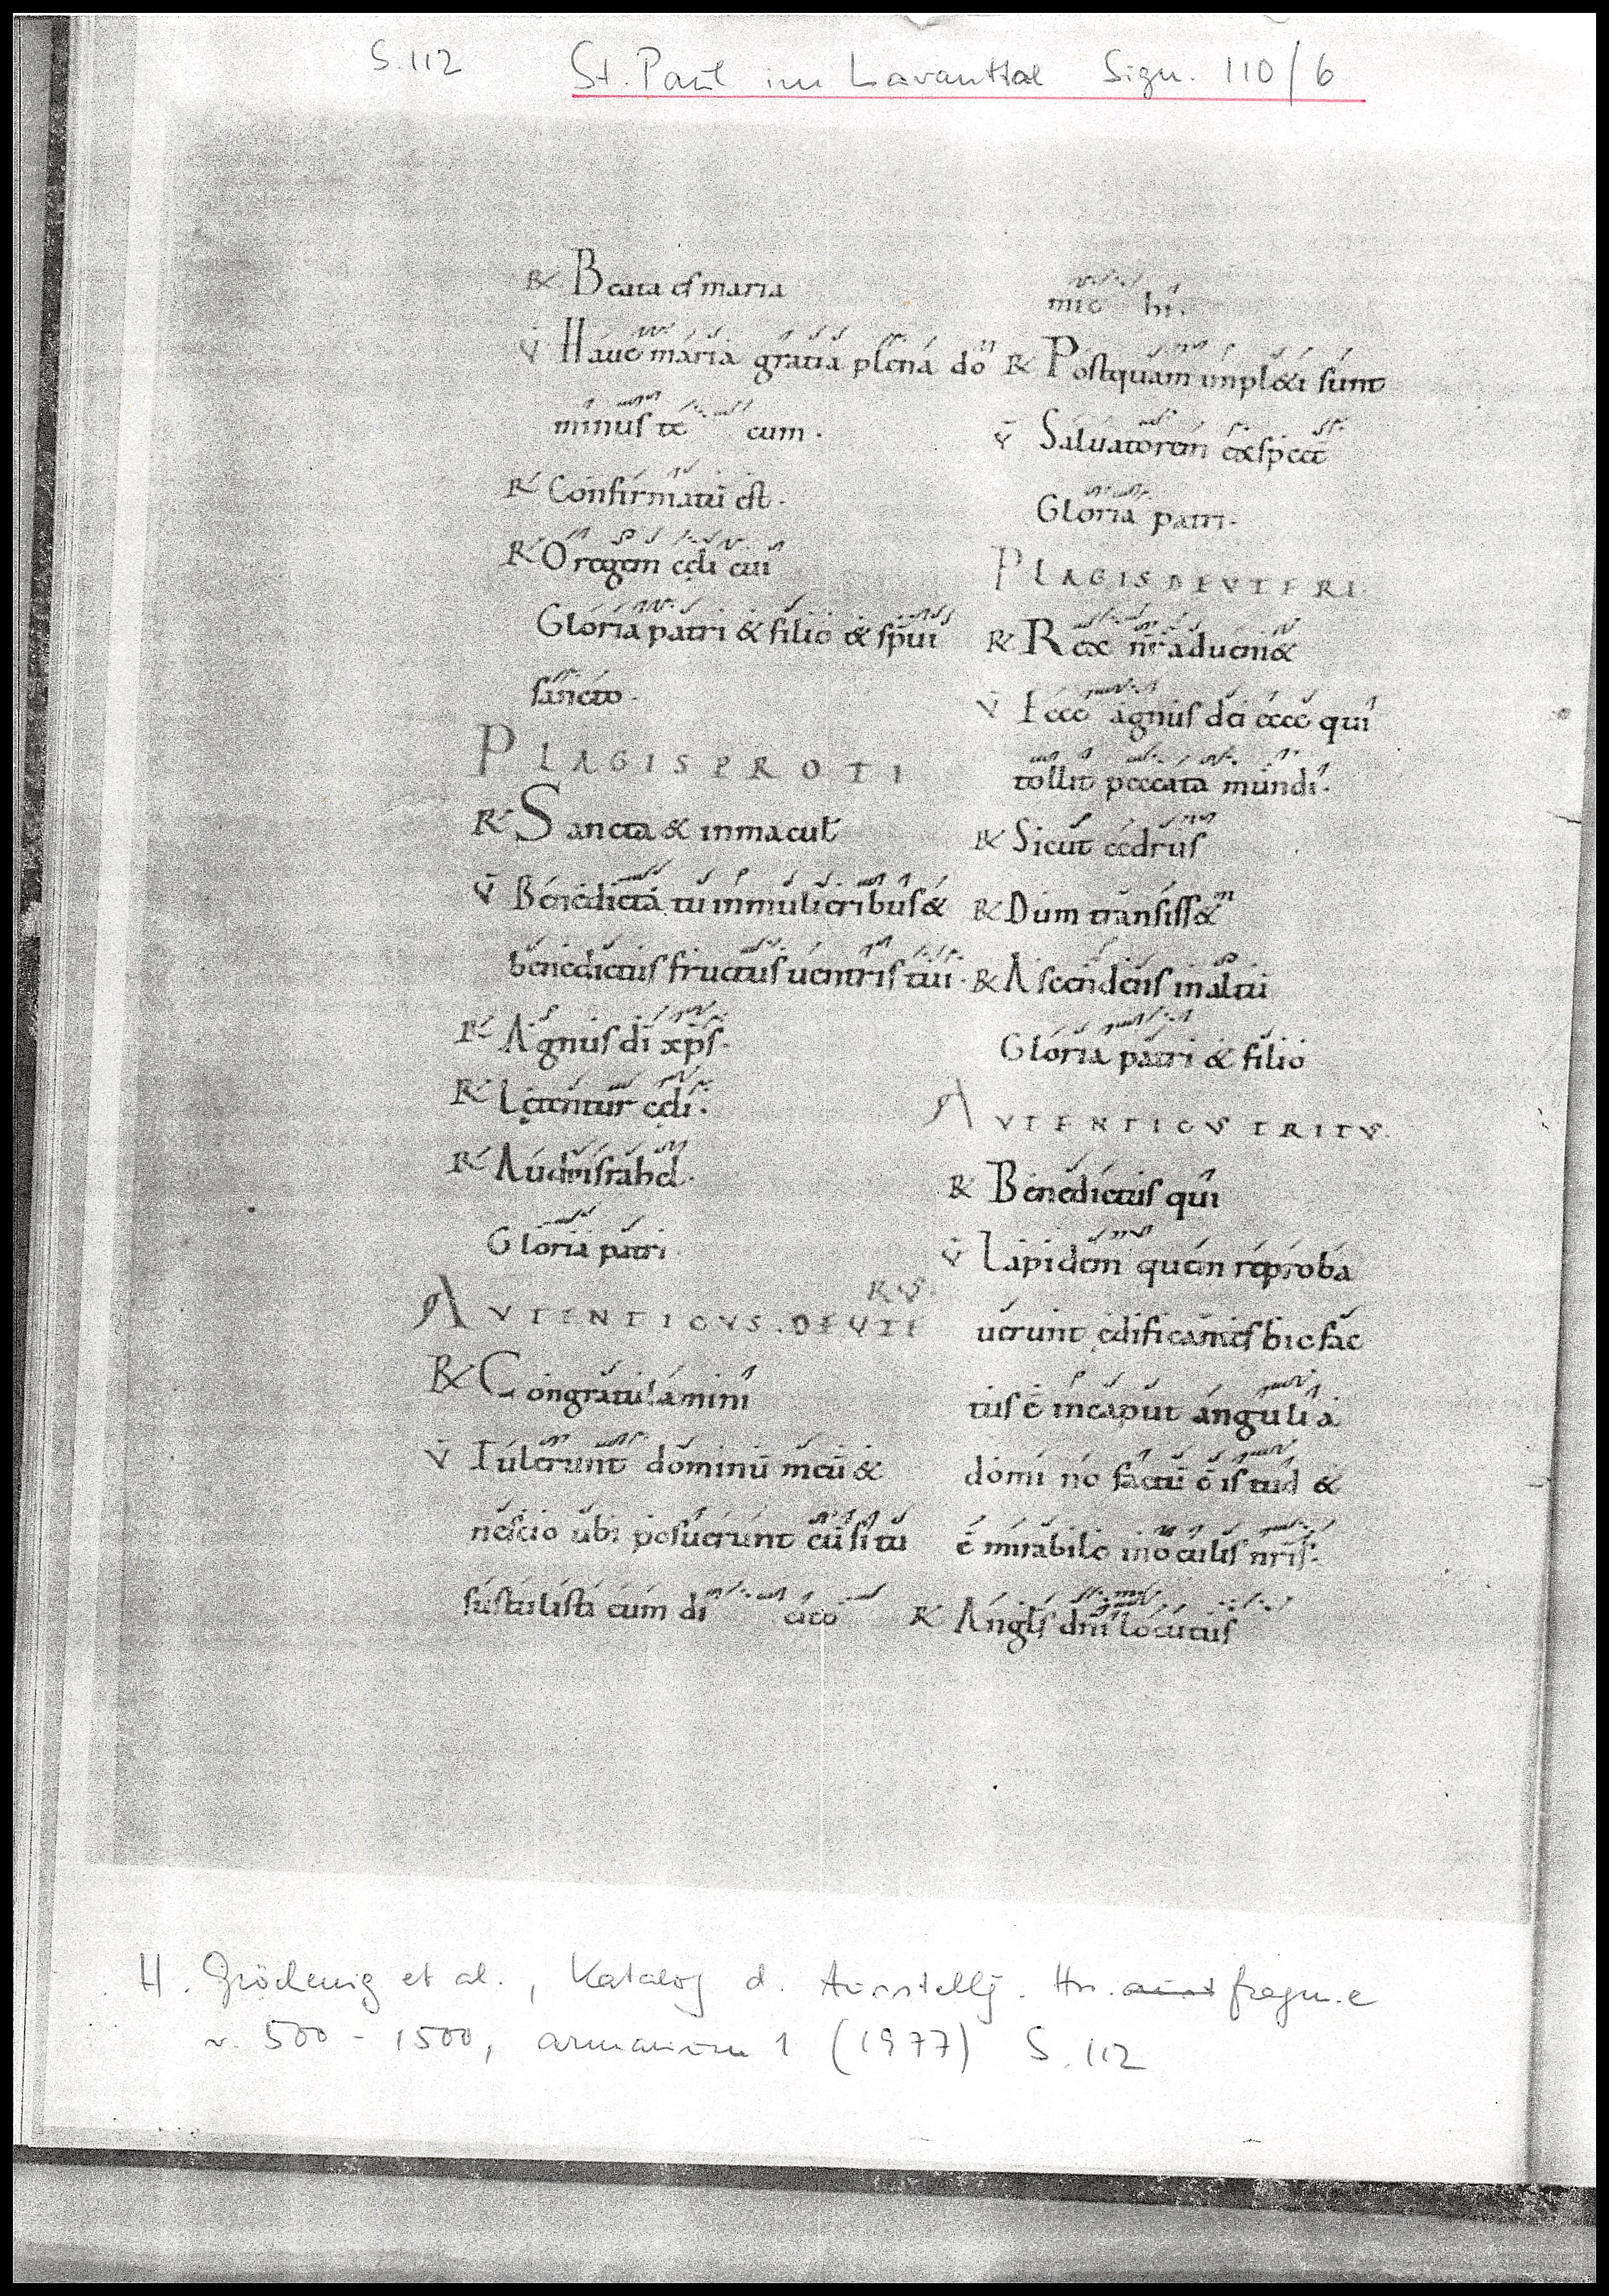 S. 112 St. Paul im Lavanttal Sign. 110/6
R Beata es maria
V Haue maria gratia plena do
minus te cum.
R Confirmatū est.
R O regem cęli cui
Gloria patri & filio & sp̄ui
sancto.
PLAGIS PROTI
R Sancta & inmacul
V Benedicta tu inmulieribus &
benedictus fructus uentris tui.
R Agnus dī xp̄s.
R Lętentur cęli.
R Audi israhel.
Gloria patri
AVTENTICVS. DEVTE
RVS.
R Congratulamini
V Tulerunt dominū meū &
nescio ubi posuerunt eū si tu
sustulisti eum di cito
mic hi.
R Postquam impl&i sunt
V Saluatorem exspect
Gloria patri.
PLAGIS DEVTERI.
R Rex nr̄ adueni&
V Ecce agnus dei ecce qui
tollit peccata mundi.
R Sicut cedrus
R Dum transiss&
R Ascendens inaltū
Gloria patri & filio
AVTENTICVS TRITVS.
R Benedictus qui
V Lapidem quem reproba
uerunt ędificantes hic fac
tus ē incaput anguli a
domi no factū ē istud &
ē mirabile inoculis nr̄is.
R Angl̄s dn̄i locutus
H. Gröchenig et al., Katalog d. Ausstellg. Hs. fragm.e
v. 500 - 1500, armarium 1 (1977) S. 112